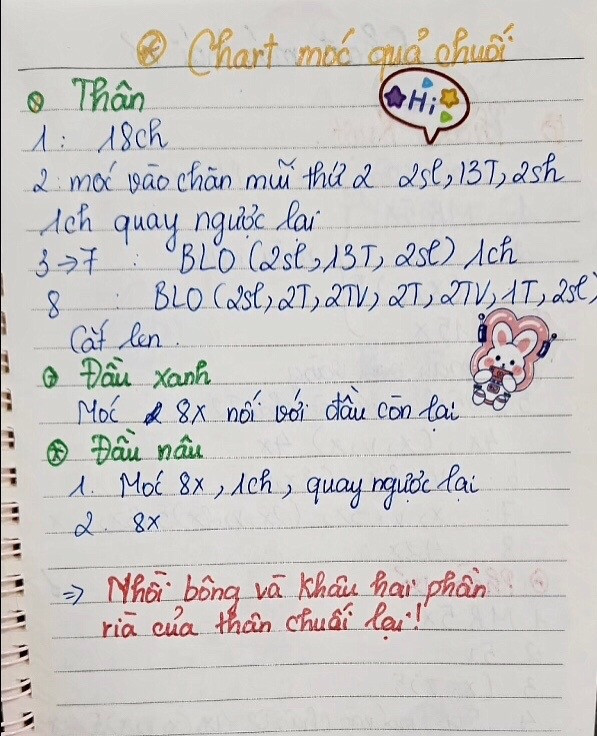 Chart móc quả chuối
Thân
Hi
1 : 18ch
2 móc vào chân mũi thứ 2 2sl, 13T, 2sh
1ch quay ngược lại
3 → 7 : BLO (2sl, 13T, 2sl) 1ch
8 : BLO (2sl, 2T, 2TV, 2T, 2TV, 1T, 2sl)
Cắt len.
Đầu xanh
Móc 8x nối với đầu còn lại
Đầu nâu
1. Móc 8x, 1ch, quay ngược lại
2. 8x
=> Nhồi bông và khâu hai phần
rìa của thân chuối lại!